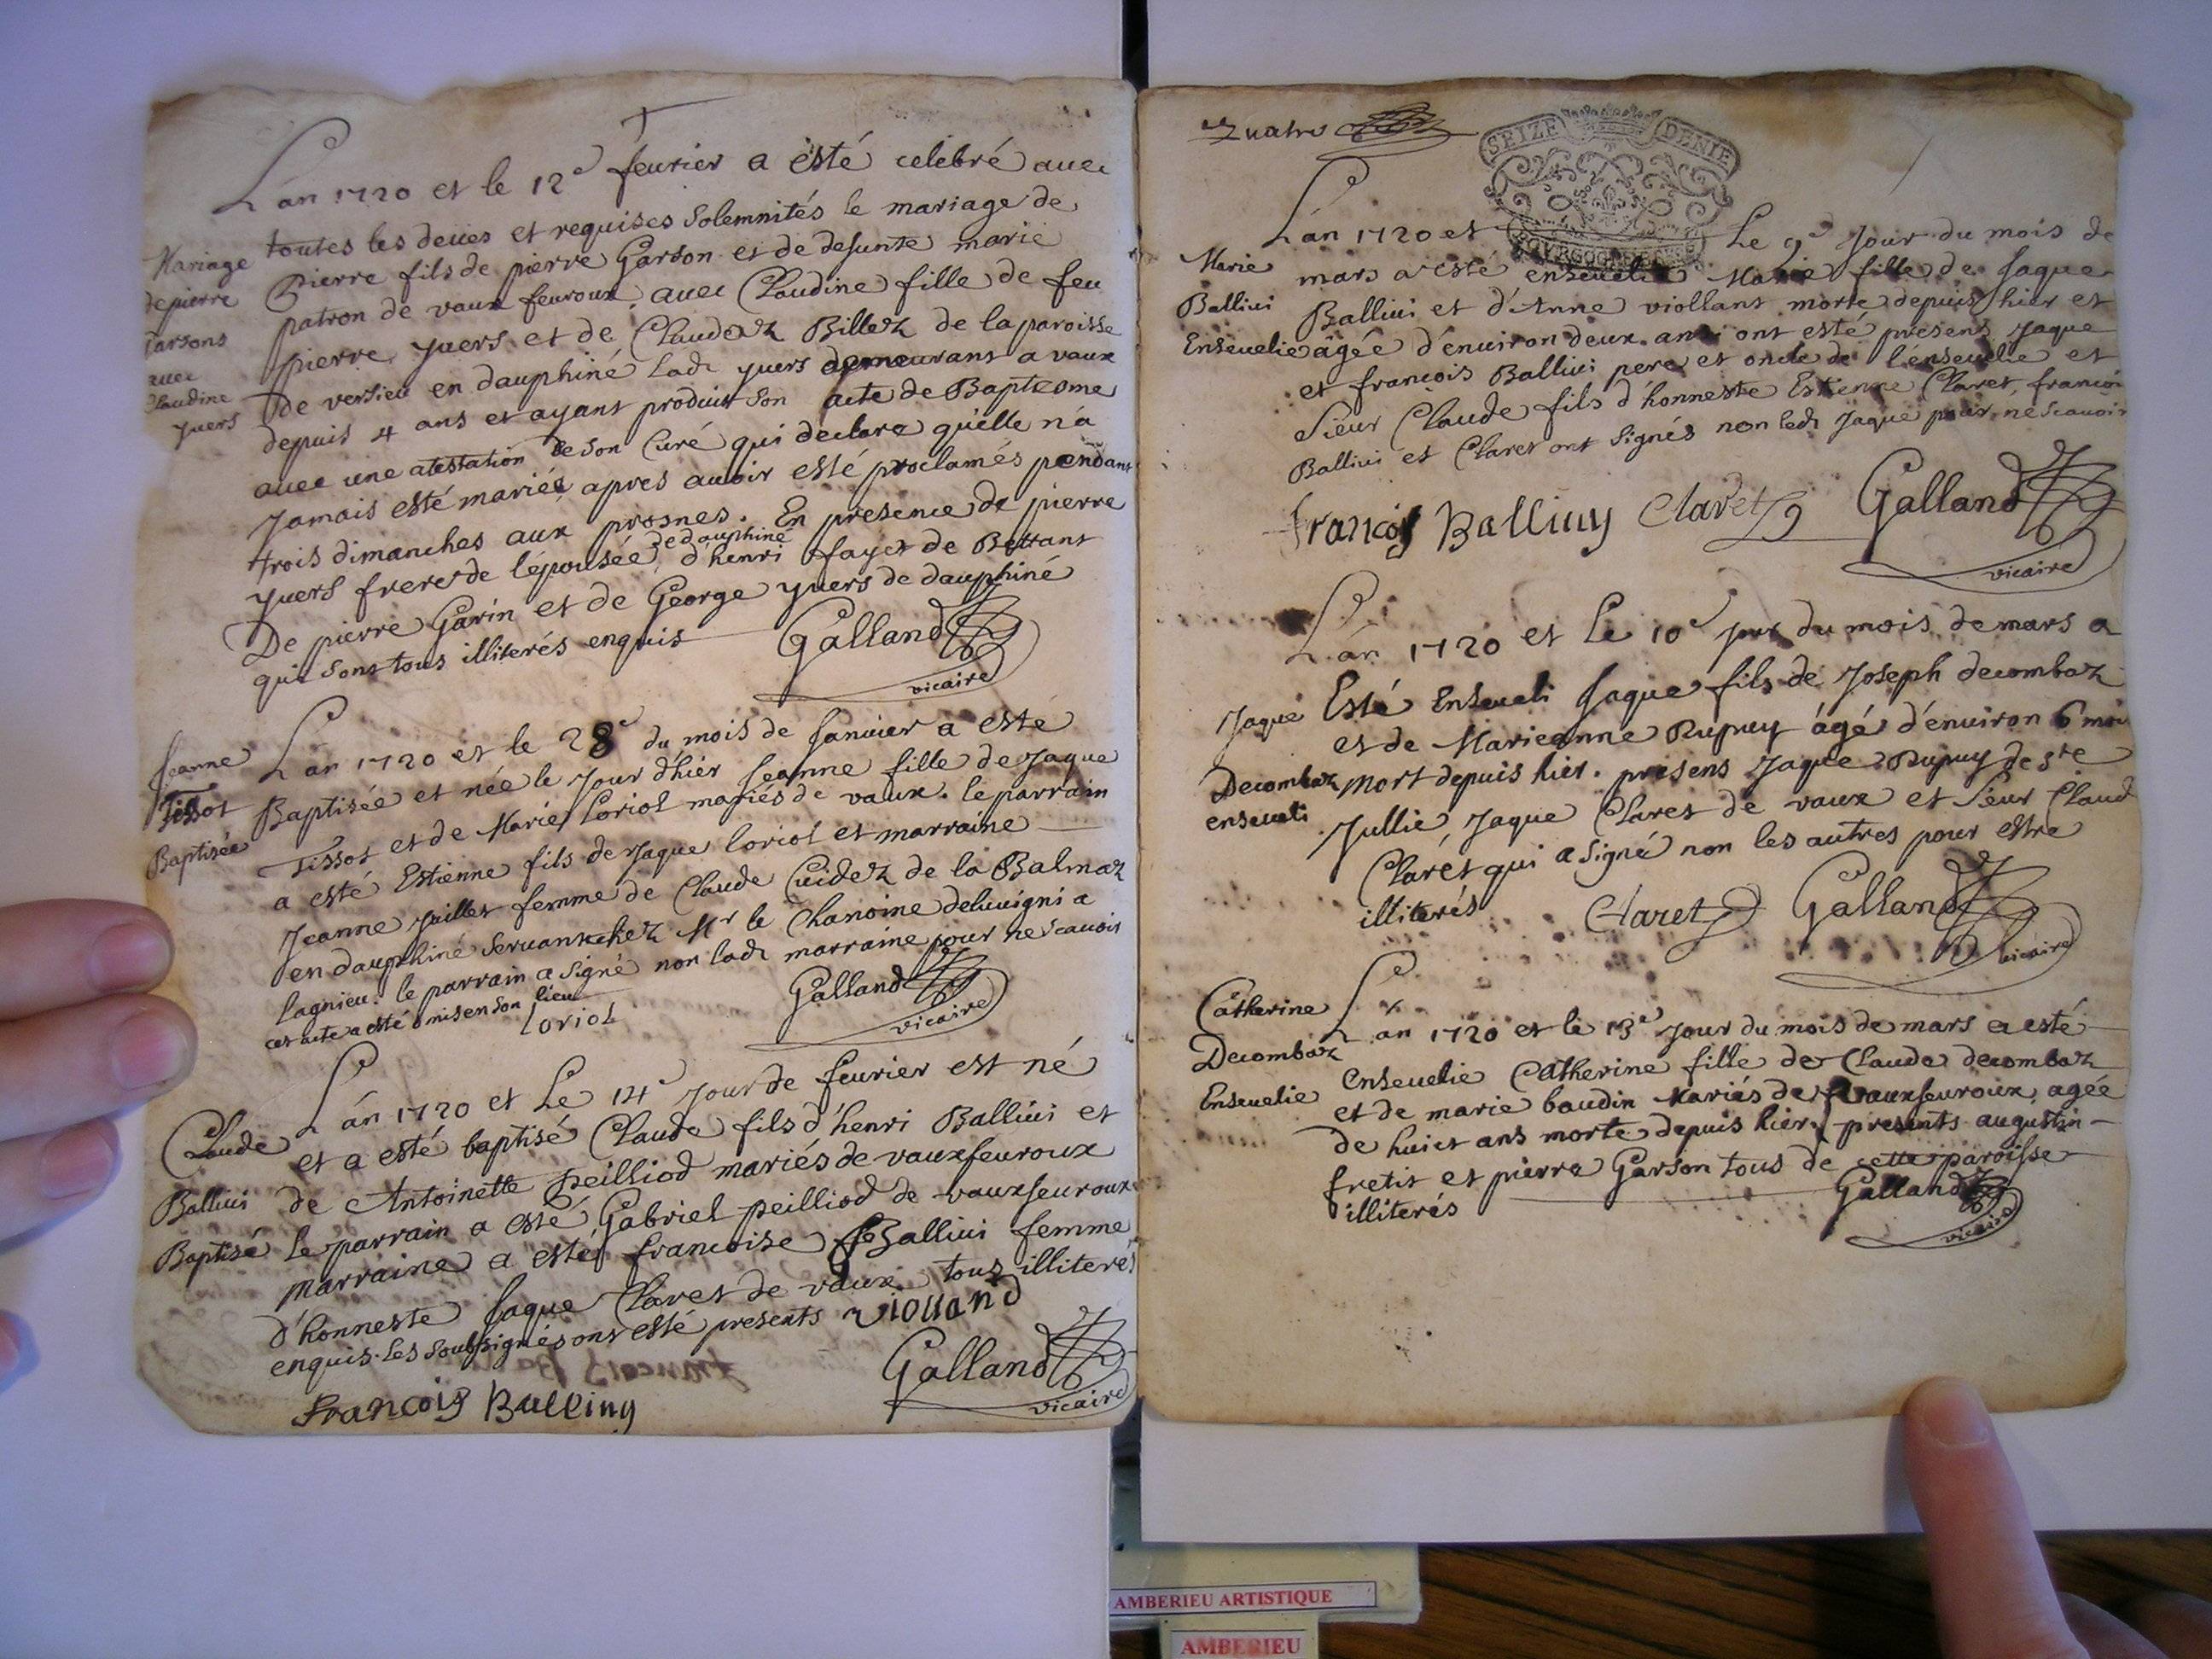 L'an 1720 et le 12e feurier a esté celebré auec
toutes les deües et requises solemnités le mariage de
Pierre fils de pierre Garson et de defunte marie
patron de vaux feuroux, auec Claudine fille de feu
pierre yuers et de Claudaz Billez de la paroisse
de versieu en dauphiné lade yuers demeurant a vaux
depuis 4 ans et ayant produit son acte de Bapteome
auec une atestation de son Curé qui declare quelle n'a
Jamais esté mariée apres auoir esté proclamés pendant
trois dimanches aux prosnes. En presence de pierre
yuers frere de l'épousée, de dauphiné d'henri fayet de Bettant
De pierre Garin et de George yuers de dauphiné
qui sont tous illiterés enquis
Galland
vicaire
Mariage
de pierre
Garsons
auec
Claudine
yuers
L'an 1720 et le 28e du mois de Januier a esté
Baptisée et née le Jour d'hier Jeanne fille de Jaque
Tissot et de Marie Loriol mariés de vaux. le parrain
a esté Estienne fils de Jaque loriol et marraine
Jeanne Juillet femme de Claude Cuidez de la Balmaz
en dauphiné seruant chez Mr le Chanoine deluuigni a
lagnieu. le parrain a signé non lade marraine pour ne scauoir
cet acte a esté mis en son lieu
Loriol
Galland
vicaire
Jeanne
Tissot
Baptisée
L'an 1720 et Le 14e Jour de feurier est né
et a esté baptisé Claude fils d'henri Balliui et
de Antoinette peilliod mariés de vauxfeuroux
le parrain a esté Gabriel peilliod de vauxfeuroux
marraine a esté francoise Balliui femme
d'honneste Jaque Claret de vaux tous illiterés
enquis. Les soubsignés ont esté presents violland
Francois Balliuy
Galland
vicaire
Claude
Balliui
Baptisé
Quatre
SEIZE DENIE
BOURGOGNE
L'an 1720 et Le 9e Jour du mois de
mars a esté enseuelie Marie fille de Jaque
Balliui et d'Anne viollant morte depuis hier et
âgée d'enuiron deux ans ont esté presens Jaque
et francois Balliui pere et oncle de l'enseuelie et
Sieur Claude fils d'honneste Estienne Claret, francois
Balliui et Claret ont signés non ledt Jaque pour ne scauoir
Francois Balliuy Claret Galland
vicaire
Marie
Balliui
Enseuelie
L'an 1720 et Le 10e jour du mois de mars a
Esté Enseueli Jaque fils de Joseph decombaz
et de Marieanne Dupuy âgé d'enuiron 6 mois
mort depuis hier. presens Jaque Dupuy de ste
Jullie, Jaque Claret de vaux et Sieur Claud
Claret qui a signé non les autres pour estre
illiterés
Claret Galland
vicaire
Jaque
Decombaz
enseueli
L'an 1720 et le 13e Jour du mois de mars a esté
enseuelie Catherine fille de Claude decombaz
et de marie baudin Mariés de vauxfeuroux, agée
de huict ans morte depuis hier, presents augustin
fretit et pierre Garson tous de cette paroisse
illiterés
Galland
vicaire
Catherine
Decombaz
Enseuelie
AMBERIEU ARTISTIQUE
AMBERIEU